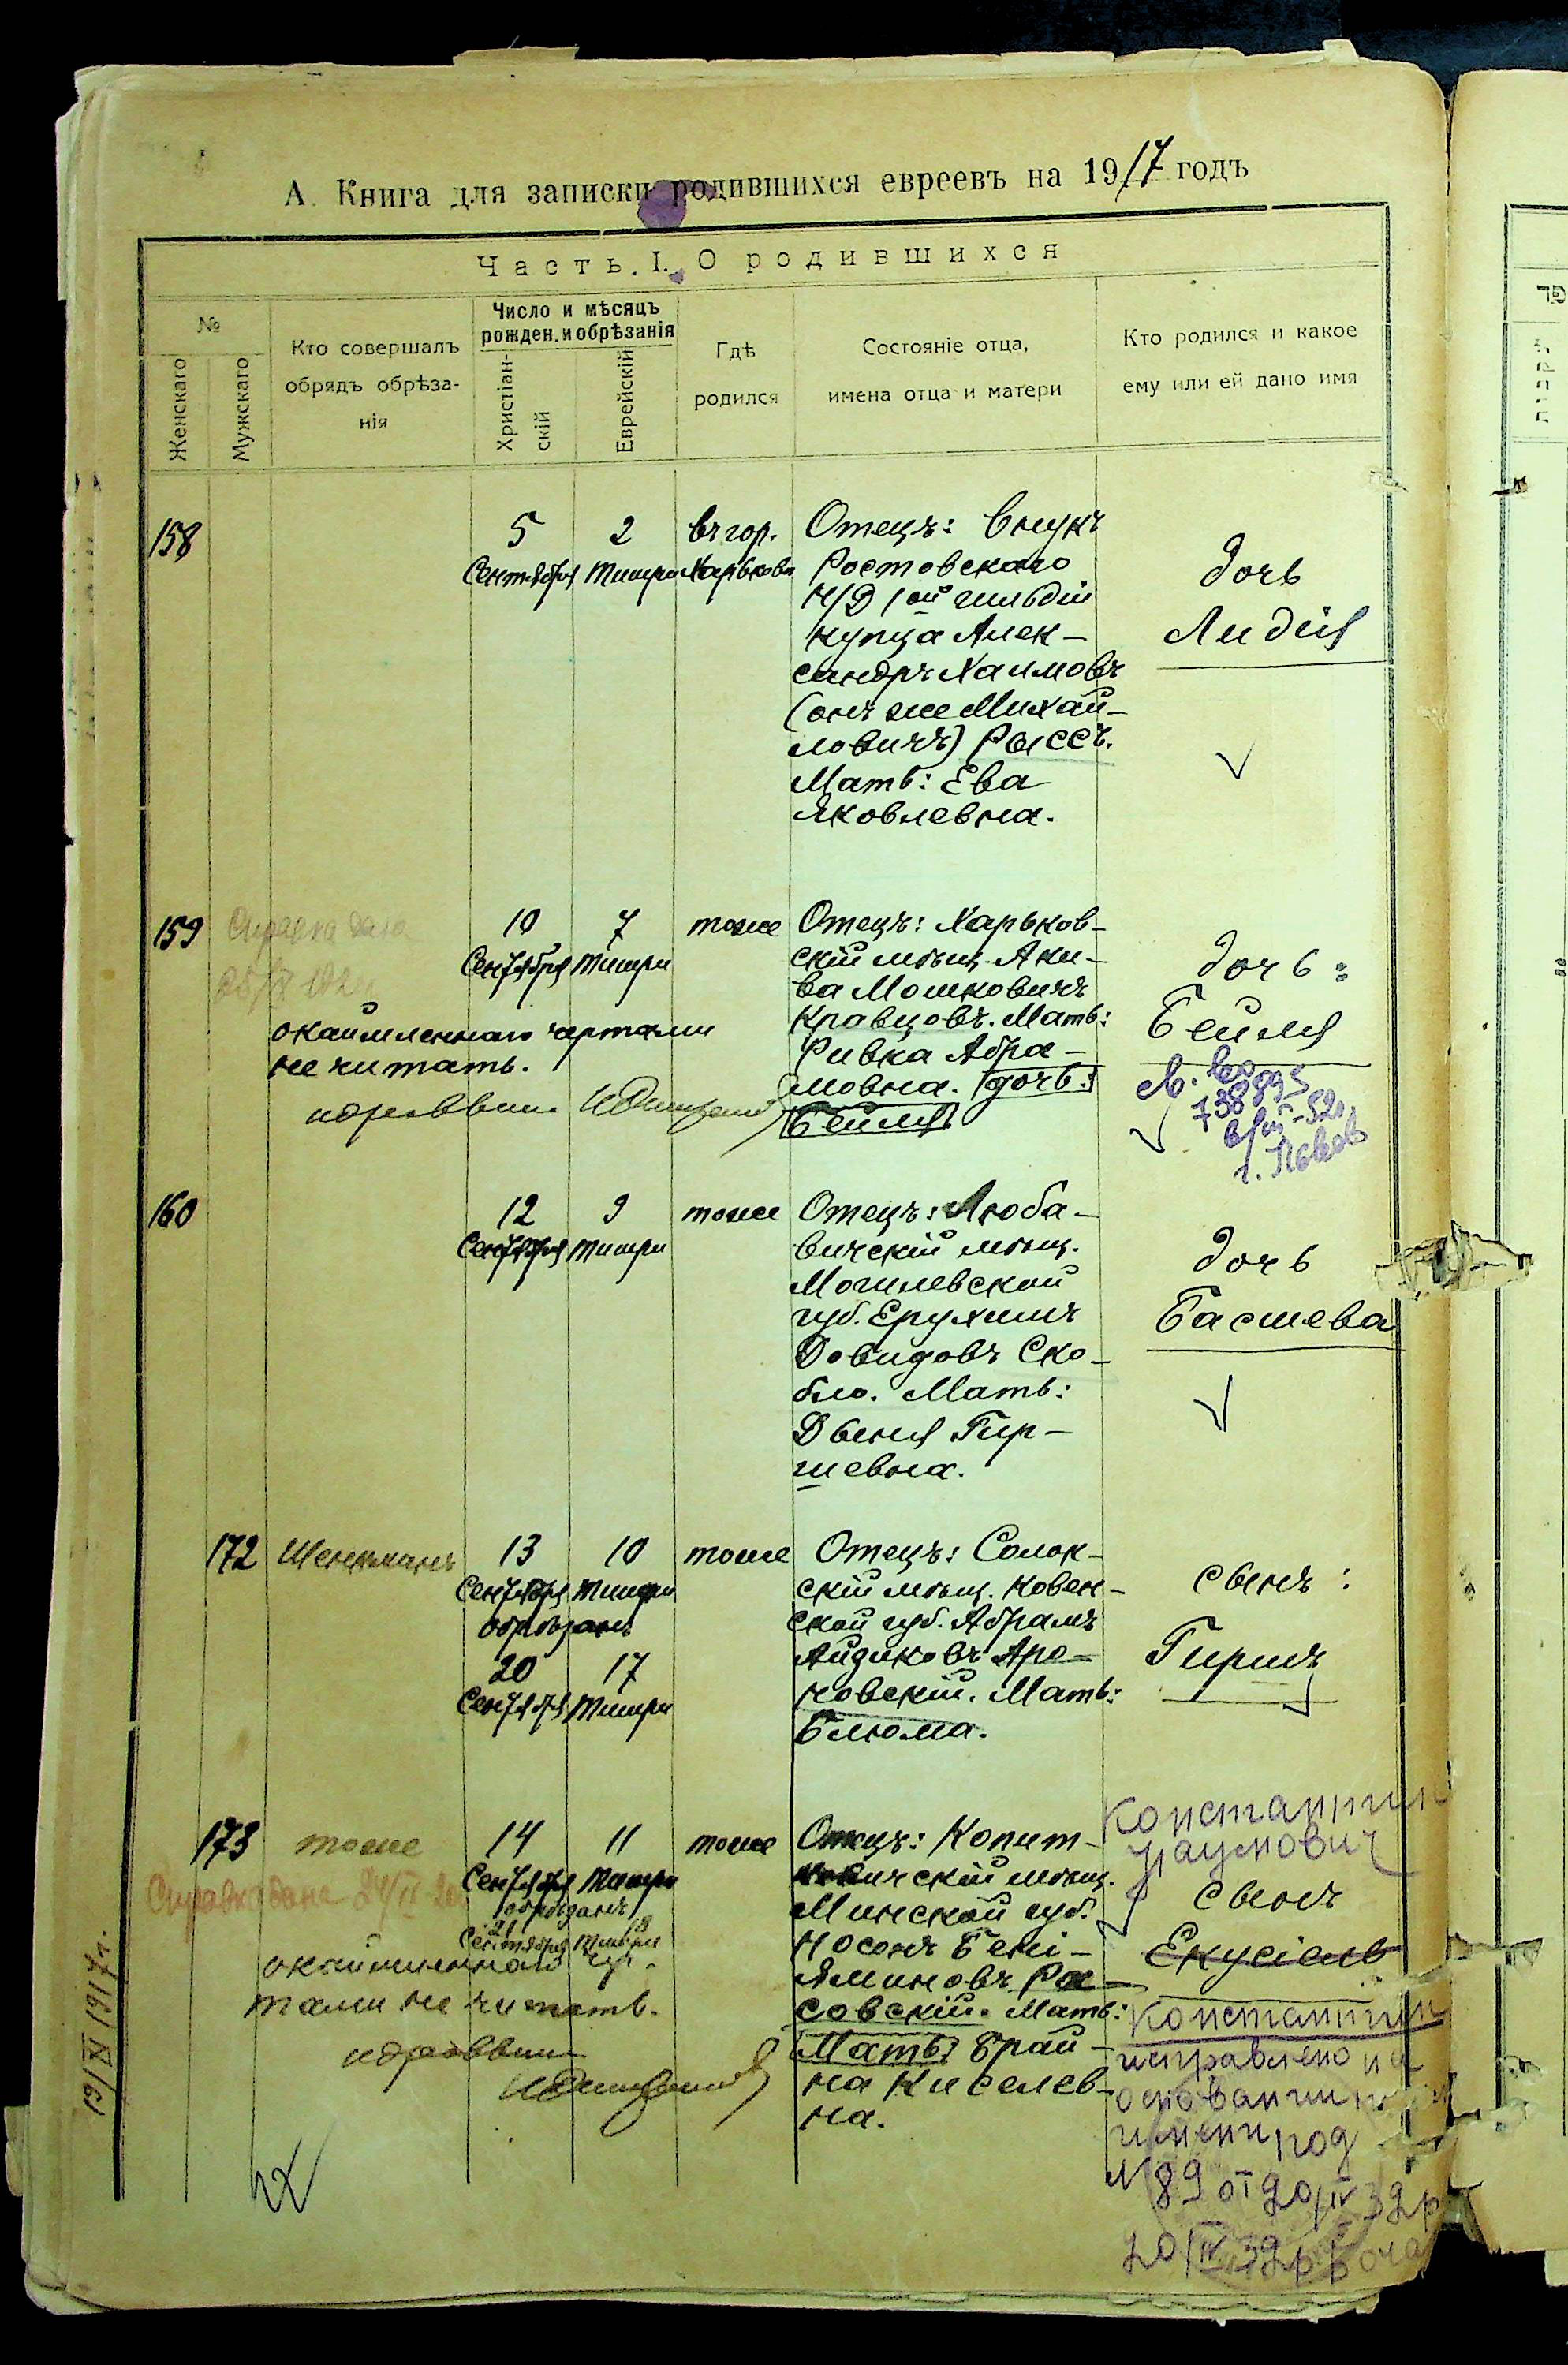 А. Книга для записки родившихся евреевъ на 1917 годъ
Часть. I. О родившихся
№
Женскаго
Мужскаго
Кто совершалъ
обрядъ обрѣза-
нія
Число и мѣсяцъ
рожден. и обрѣзанія
Христіан-
скій
Еврейскій
Гдѣ
родился
Состояніе отца,
имена отца и матери
Кто родился и какое
ему или ей дано имя
158
5
Сентября
2
Тишри
въ гор.
Харькове
Отецъ: внукъ
Ростовскаго
н/Д 1ой гильдіи
купца Алек-
сандръ Хаимовъ
(онъ же Михай-
ловичъ) Рыссъ.
Мать: Ева
Яковлевна.
дочь
Лидія
159
Справка дана
10
Сентября
7
Тишри
тоже
окаймленнаго чертами
не читать.
Отецъ: Харьков-
скій мѣщ. Аки-
ва Мошковичъ
Кравцовъ. Мать:
Ривка Абра-
мовна. дочь:
Бейля
дочь:
Бейля
738895
160
12
Сентября
9
Тишри
тоже
Отецъ: Люба-
вичскій мѣщ.
Могилевской
губ. Ерухимъ
Довидовъ Ско-
бло. Мать:
Двеня Гир-
шевна.
дочь
Басшева
172
Шенкманъ
13
Сентября
10
Тишри
обрѣзанъ
20
Сентября
17
Тишри
тоже
Отецъ: Солок-
скій мѣщ. Ковен-
ской губ. Абрамъ
Айзиковъ Аро-
новскій. Мать:
Блюма.
сынъ:
Гиршъ
173
тоже
Справка дана 24/II
14
Сентября
11
Тишри
обрѣзанъ
21
Сентября
18
Тишри
тоже
окаймленнаго чер-
тами не читать.
Отецъ: Копыт-
вичскій мѣщ.
Минской губ.
Носонъ Бені-
яминовъ Ра-
совскій. Мать:
Мать: Брай-
на Киселев-
на.
Константин
Наумович
сынъ
Екусіель
Константин
исправлено на
основании
имени под
№ 89 от 20/IV 39 р
20/IV 39 р
19/XI 1917 г.